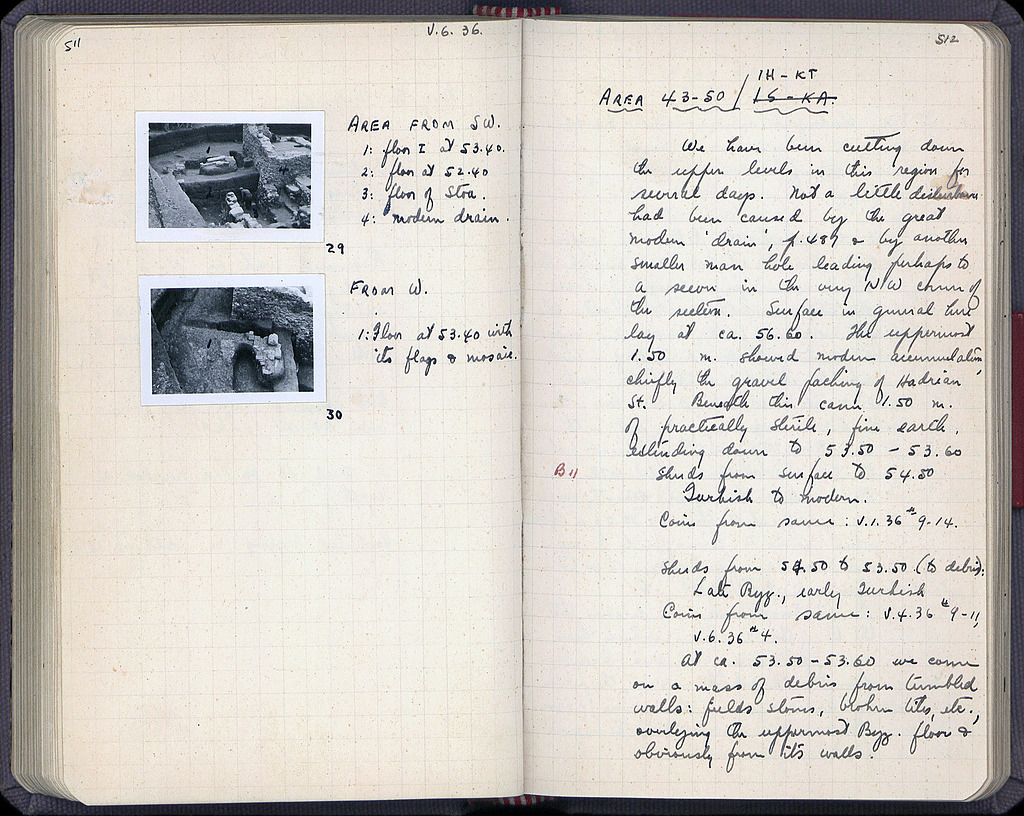 511
V.6.36.
AREA FROM SW.
1: floor I at 53.40.
2: floor at 52.40
3: floor of Stoa.
4: modern drain.
29
FROM W.
1: Floor at 53.40 with
its flags & mosaic.
30
512
IH-KT
AREA 43-50 / IS-KA.
We have been cutting down
the upper levels in this region for
several days. Not a little disturbance
had been caused by the great
modern 'drain', p. 487 & by another
smaller man hole leading perhaps to
a sewer in the very NW corner of
the section. Surface in general here
lay at ca. 56.60. The uppermost
1.50 m. showed modern accumulation,
chiefly the gravel packing of Hadrian
St. Beneath this came 1.50 m.
of practically sterile, fine earth,
extending down to 53.50 - 53.60
B 11
Sherds from surface to 54.50
Turkish to modern.
Coins from same: V.1.36 # 9-14.
Sherds from 54.50 to 53.50 (to debris):
Late Byz., early Turkish
Coins from same: V.4.36 # 9-11,
V.6.36 # 4.
At ca. 53.50-53.60 we come
on a mass of debris from tumbled
walls: fields stones, broken tiles, etc.,
overlying the uppermost Byz. floor &
obviously from its walls.